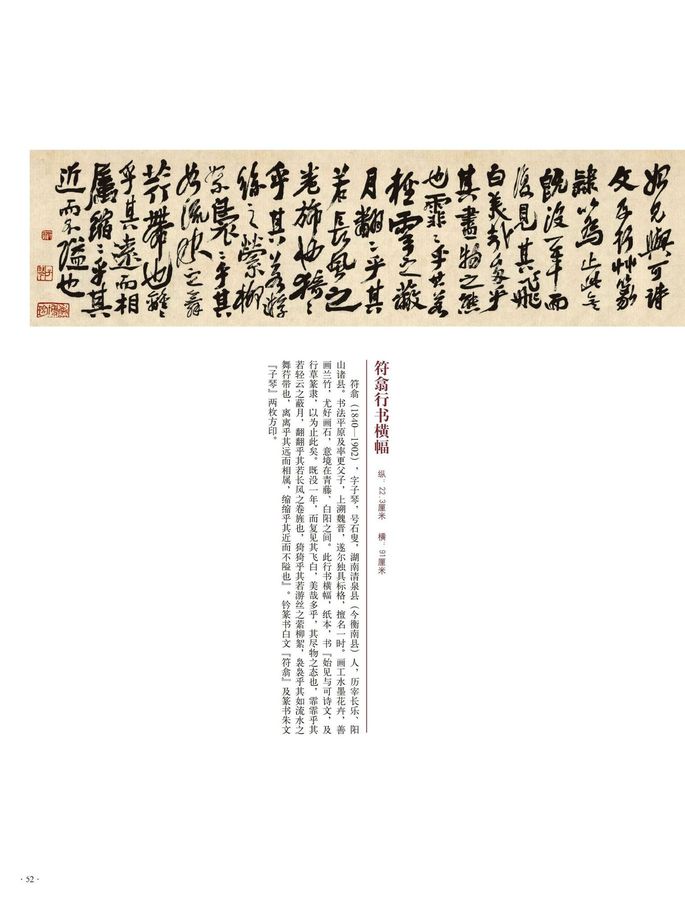 始見與可詩
文及行艸篆
隸以為止此矣
既没一年而
復見其飛
白美哉多乎
其盡物之態
也霏霏乎其若
輕雲之蔽
月翻翻乎其
若長風之
卷旆也猗猗
乎其若游
絲之縈柳
絮裊裊乎其
如流水之舞
荇帶也離離
乎其遠而相
屬縮縮乎其
近而不隘也
符翕行书横幅
纵：22.3厘米 横：91厘米
符翕（1840—1902），字子琴，号石叟，湖南清泉县（今衡南县）人，历宰长乐、阳
山诸县。书法平原及率更父子，上溯魏晋，遂尔独具标格，擅名一时。画工水墨花卉，善
画兰竹，尤好画石，意境在青藤、白阳之间。此行书横幅，纸本，书『始见与可诗文，及
行草篆隶，以为止此矣。既没一年，而复见其飞白，美哉多乎，其尽物之态也，霏霏乎其
若轻云之蔽月，翻翻乎其若长风之卷旌也，猗猗乎其若游丝之萦柳絮，袅袅乎其如流水之
舞荇带也，离离乎其远而相属，缩缩乎其近而不隘也』。钤篆书白文『符翕』及篆书朱文
『子琴』两枚方印。
· 52 ·